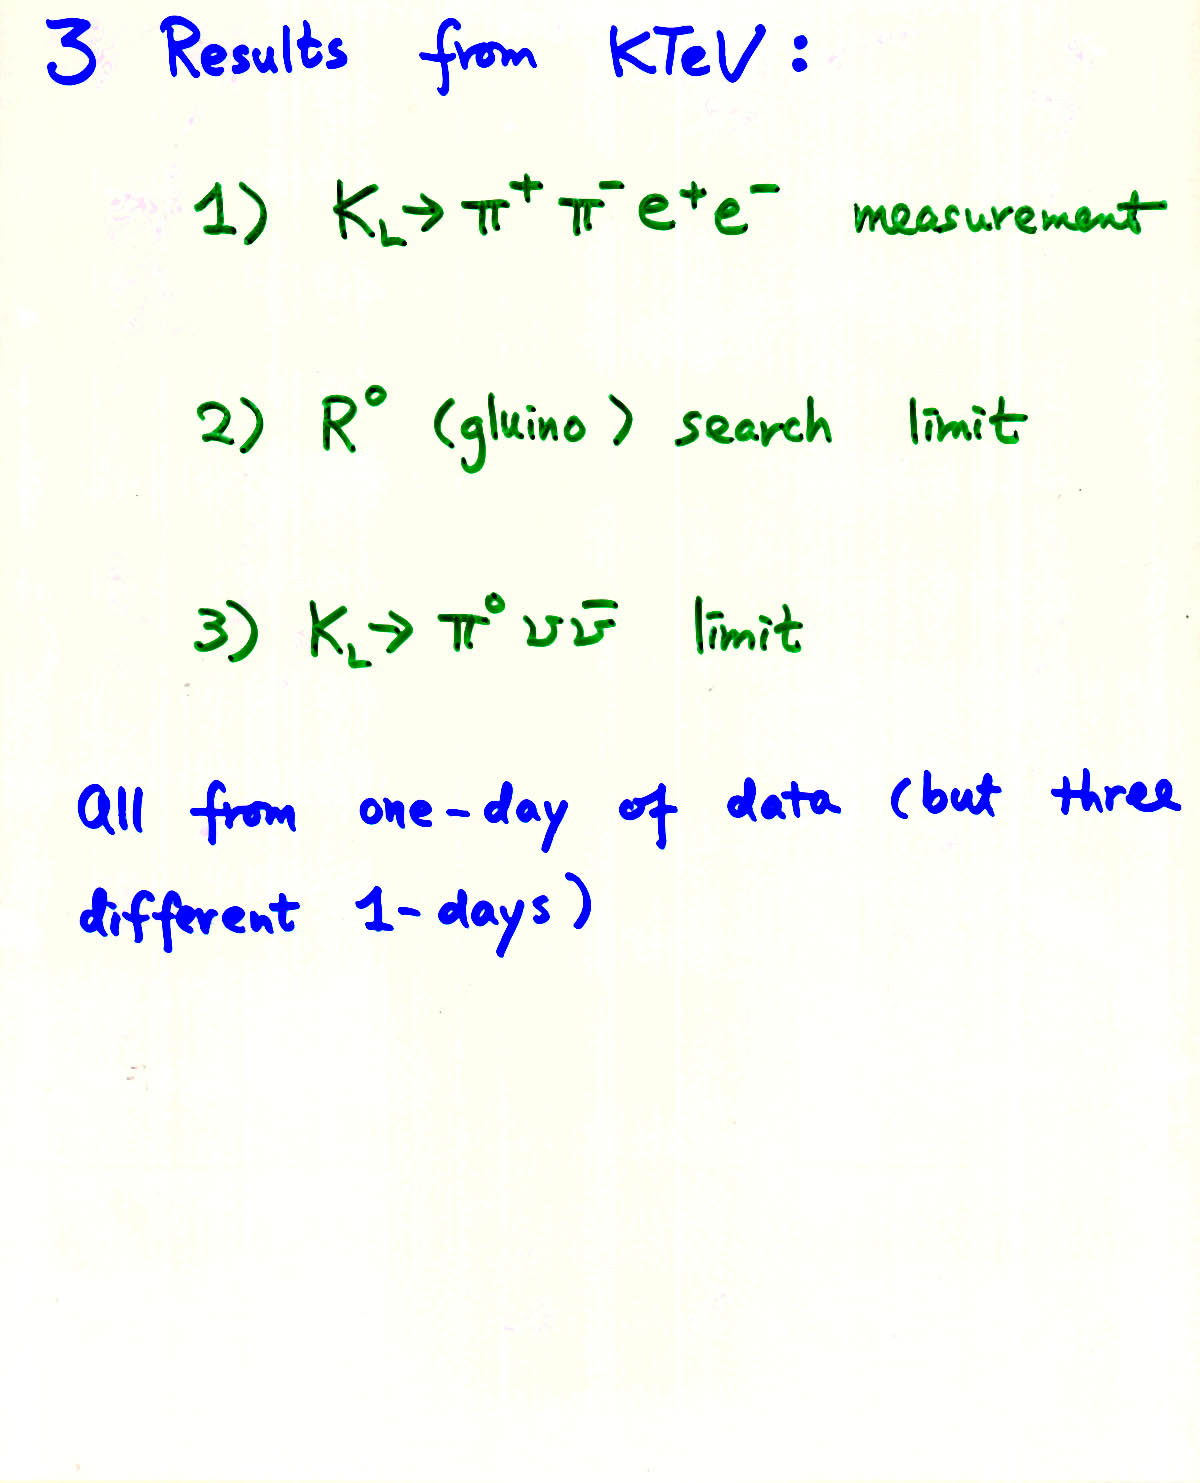 3 Results from KTeV :
1) K_L → π⁺ π⁻ e⁺ e⁻ measurement
2) R⁰ (gluino) search limit
3) K_L → π⁰ ν ν̄ limit
All from one-day of data (but three
different 1-days)